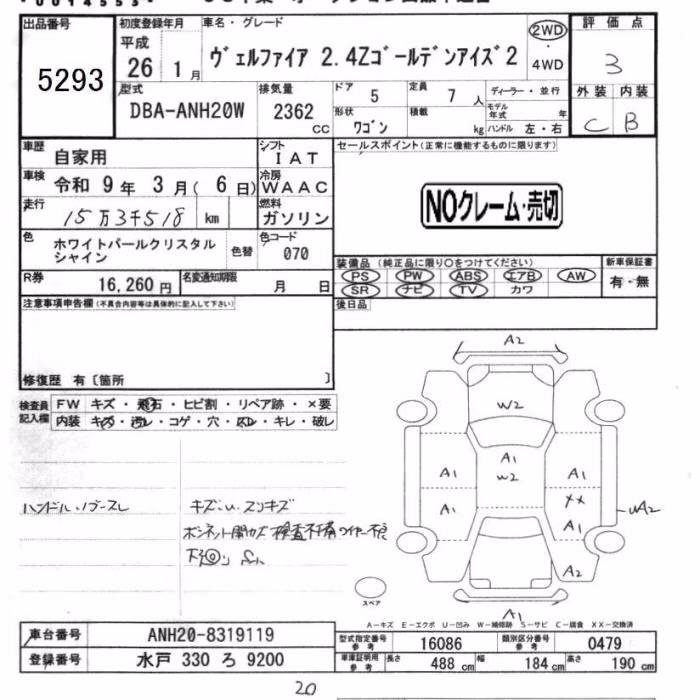 出品番号
5293
初度登録年月
平成
26 1月
車名・グレード
ヴェルファイア 2.4Zゴールデンアイズ2
2WD
・
4WD
評価点
3
外装 内装
C B
型式
DBA-ANH20W
排気量
2362
cc
ドア
5
定員
7 人
形状
ワゴン
積載
kg
ディーラー・並行
モデル年式 年
ハンドル 左・右
車歴
自家用
シフト
IAT
車検
令和 9年 3月( 6日)
冷房
WAAC
走行
15万3千518 km
燃料
ガソリン
色
ホワイトパールクリスタル
シャイン
色替
色コード
070
R券
16,260 円
名変通知期限
月 日
セールスポイント(正常に機能するものに限ります)
NOクレーム・売切
装備品(純正品に限り○をつけてください)
PS PW ABS エアB AW
SR ナビ TV カワ
新車保証書
有・無
後日品
注意事項申告欄(不具合内容等は具体的に記入して下さい)
修復歴 有〔箇所 〕
検査員
記入欄
FW キズ・飛石・ヒビ割・リペア跡・×要
内装 キズ・汚レ・コゲ・穴・スレ・キレ・破レ
ハンドル・ノブスレ
キズ・u・スリキズ
A2
W2
A1
W2
A1
A1
A1
XX
A1
A2
uA2
A1
スペア
A-キズ E-エクボ U-凹み W-補修跡 S-サビ C-腐食 XX-交換済
車台番号
ANH20-8319119
登録番号
水戸 330 ろ 9200
型式指定番号
参考
16086
類別区分番号
参考
0479
車庫証明用
参考
長さ
488 cm
幅
184 cm
高さ
190 cm
20